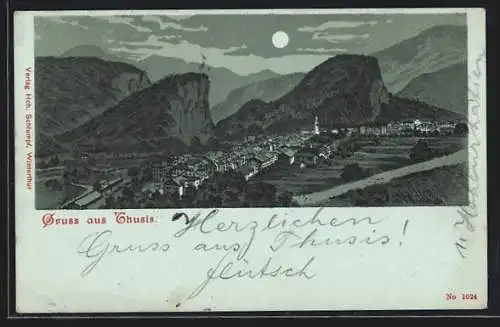 Verlag Hch. Schlumpf, Winterthur
Gruss aus Thusis.
Herzlichen
Gruss aus Thusis!
No 1024